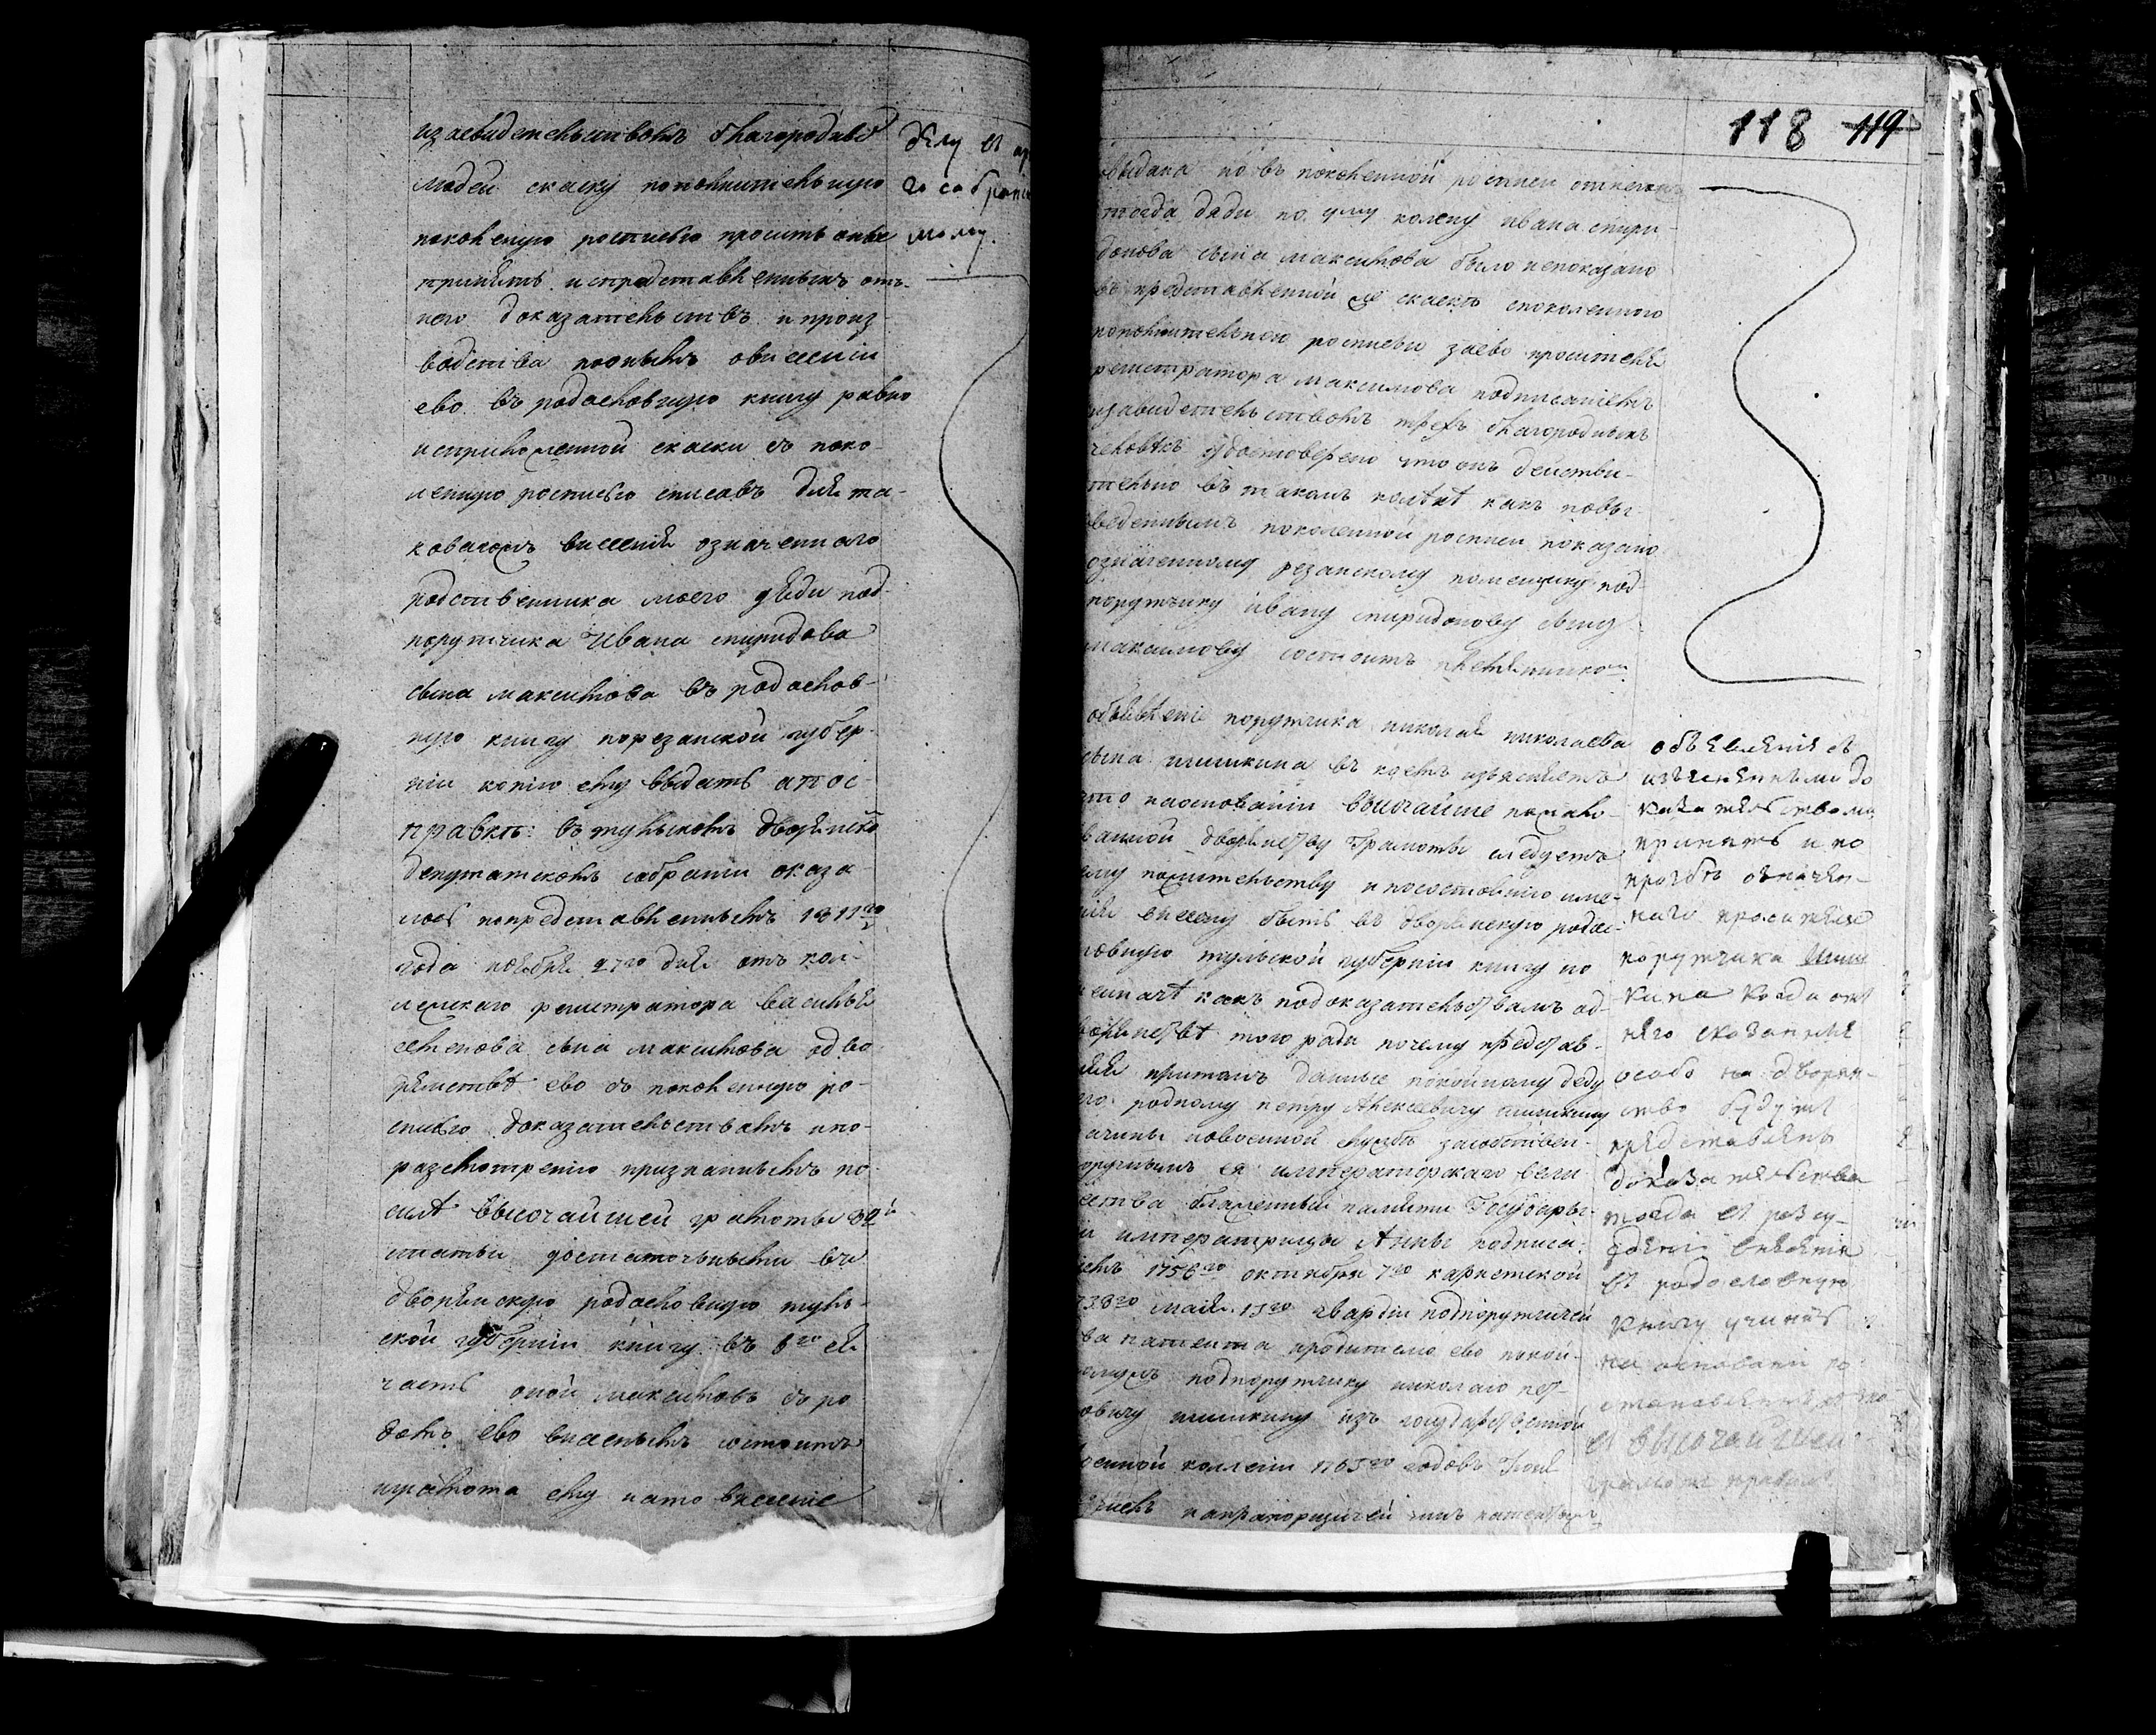 изсвидетельствомъ благородныхъ
людей скаску попоколительную
поколеную росписью проситъ оные
принять испредставленныхъ отъ
него доказательствъ ипроиз-
водства поонымъ овнесении
ево въ родословную книгу равно
исприложенной скаски съ поко-
ленную росписью списавъ для та-
коваго внесения означеннаго
родственника моего дяди под-
порутчика Ивана спиридова
сына максимова въ родослов-
ную книгу порезанской губер-
нии копию ему выдать апос-
правкѣ: въ тульскомъ дворянско
депутатскомъ собрании оказа-
лось попредставленнымъ 1811го
года ноября 27го дня отъ кол-
лежскаго регистратора василья
семенова сына максимова одво-
рянствѣ ево съ поколенную ро-
списью доказательствамъ ипо-
разсмотрению признаннымъ по
силѣ высочайшей грамоты
статьи достаточными въ
дворянскую родословную туль-
ской губернии книгу въ 6ю ея
часть оной максимовъ съ ро-
домъ ево внесеннымъ состоитъ
играмота ему нато внесение
делу въ
го собрани
мому.
118 119
выдана но въ поколенной росписи
тогда дяди по колену ивана спири-
донова сына максимова было непоказано
въ представленной же скаскѣ споколенною
росписью заево просителя
регистратора максимова подписаниемъ
изсвидетельствомъ трехъ благородныхъ
человѣкъ удостоверено что онъ действи-
тельно въ такомъ колѣне какъ повы-
веденнымъ поколенной росписи показано
означенному резанскому помещику под-
порутчику ивану спиридонову сыну
максимову состоитъ племянникомъ
объявление порутчика николая николаева
сына шишкина въ коемъ изъясняетъ
что наосновании высочайше пожало-
ванной дворянству Грамоты следуетъ
ему пожительству и посостоянию име-
ния внесену быть въ дворянскую родос-
ловную тульской губернии книгу но
какъ подоказательствамъ од-
ворянствѣ того ради почему представ-
ляя притомъ данные покойному деду
его родному петру Алексеевичу шишкину
начины повоенной службѣ засобствен-
норучнымъ ея императорскаго вели-
чества блаженныя памяти Государы-
ни императрицы Анны подписа-
октября 7го
маия 15го гвардии подпорутчичей
патента иродителю ево покой-
ному подпорутчику николаю пет-
ровичу шишкину изъ государственной
военной коллегии 1765го годовъ
напрапорщичей чинъ
объявление съ
изъясненными до
казательствами
принять и по
прозбѣ означен-
наго просителя
порутчика Шиш
кина когда отъ
него сказанные
особо на дворян-
ство будутъ
представлены
доказательства
тогда въ разсу-
ждении внесения
въ родословную
книгу учинить
на основании по
становленныхъ
въ высочайшей
грамоте правилъ